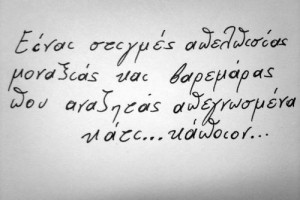 Είναι στιγμές απελπισίας
μοναξιάς και βαρεμάρας
που αναζητάς απεγνωσμένα
κάτι... κάποιον...